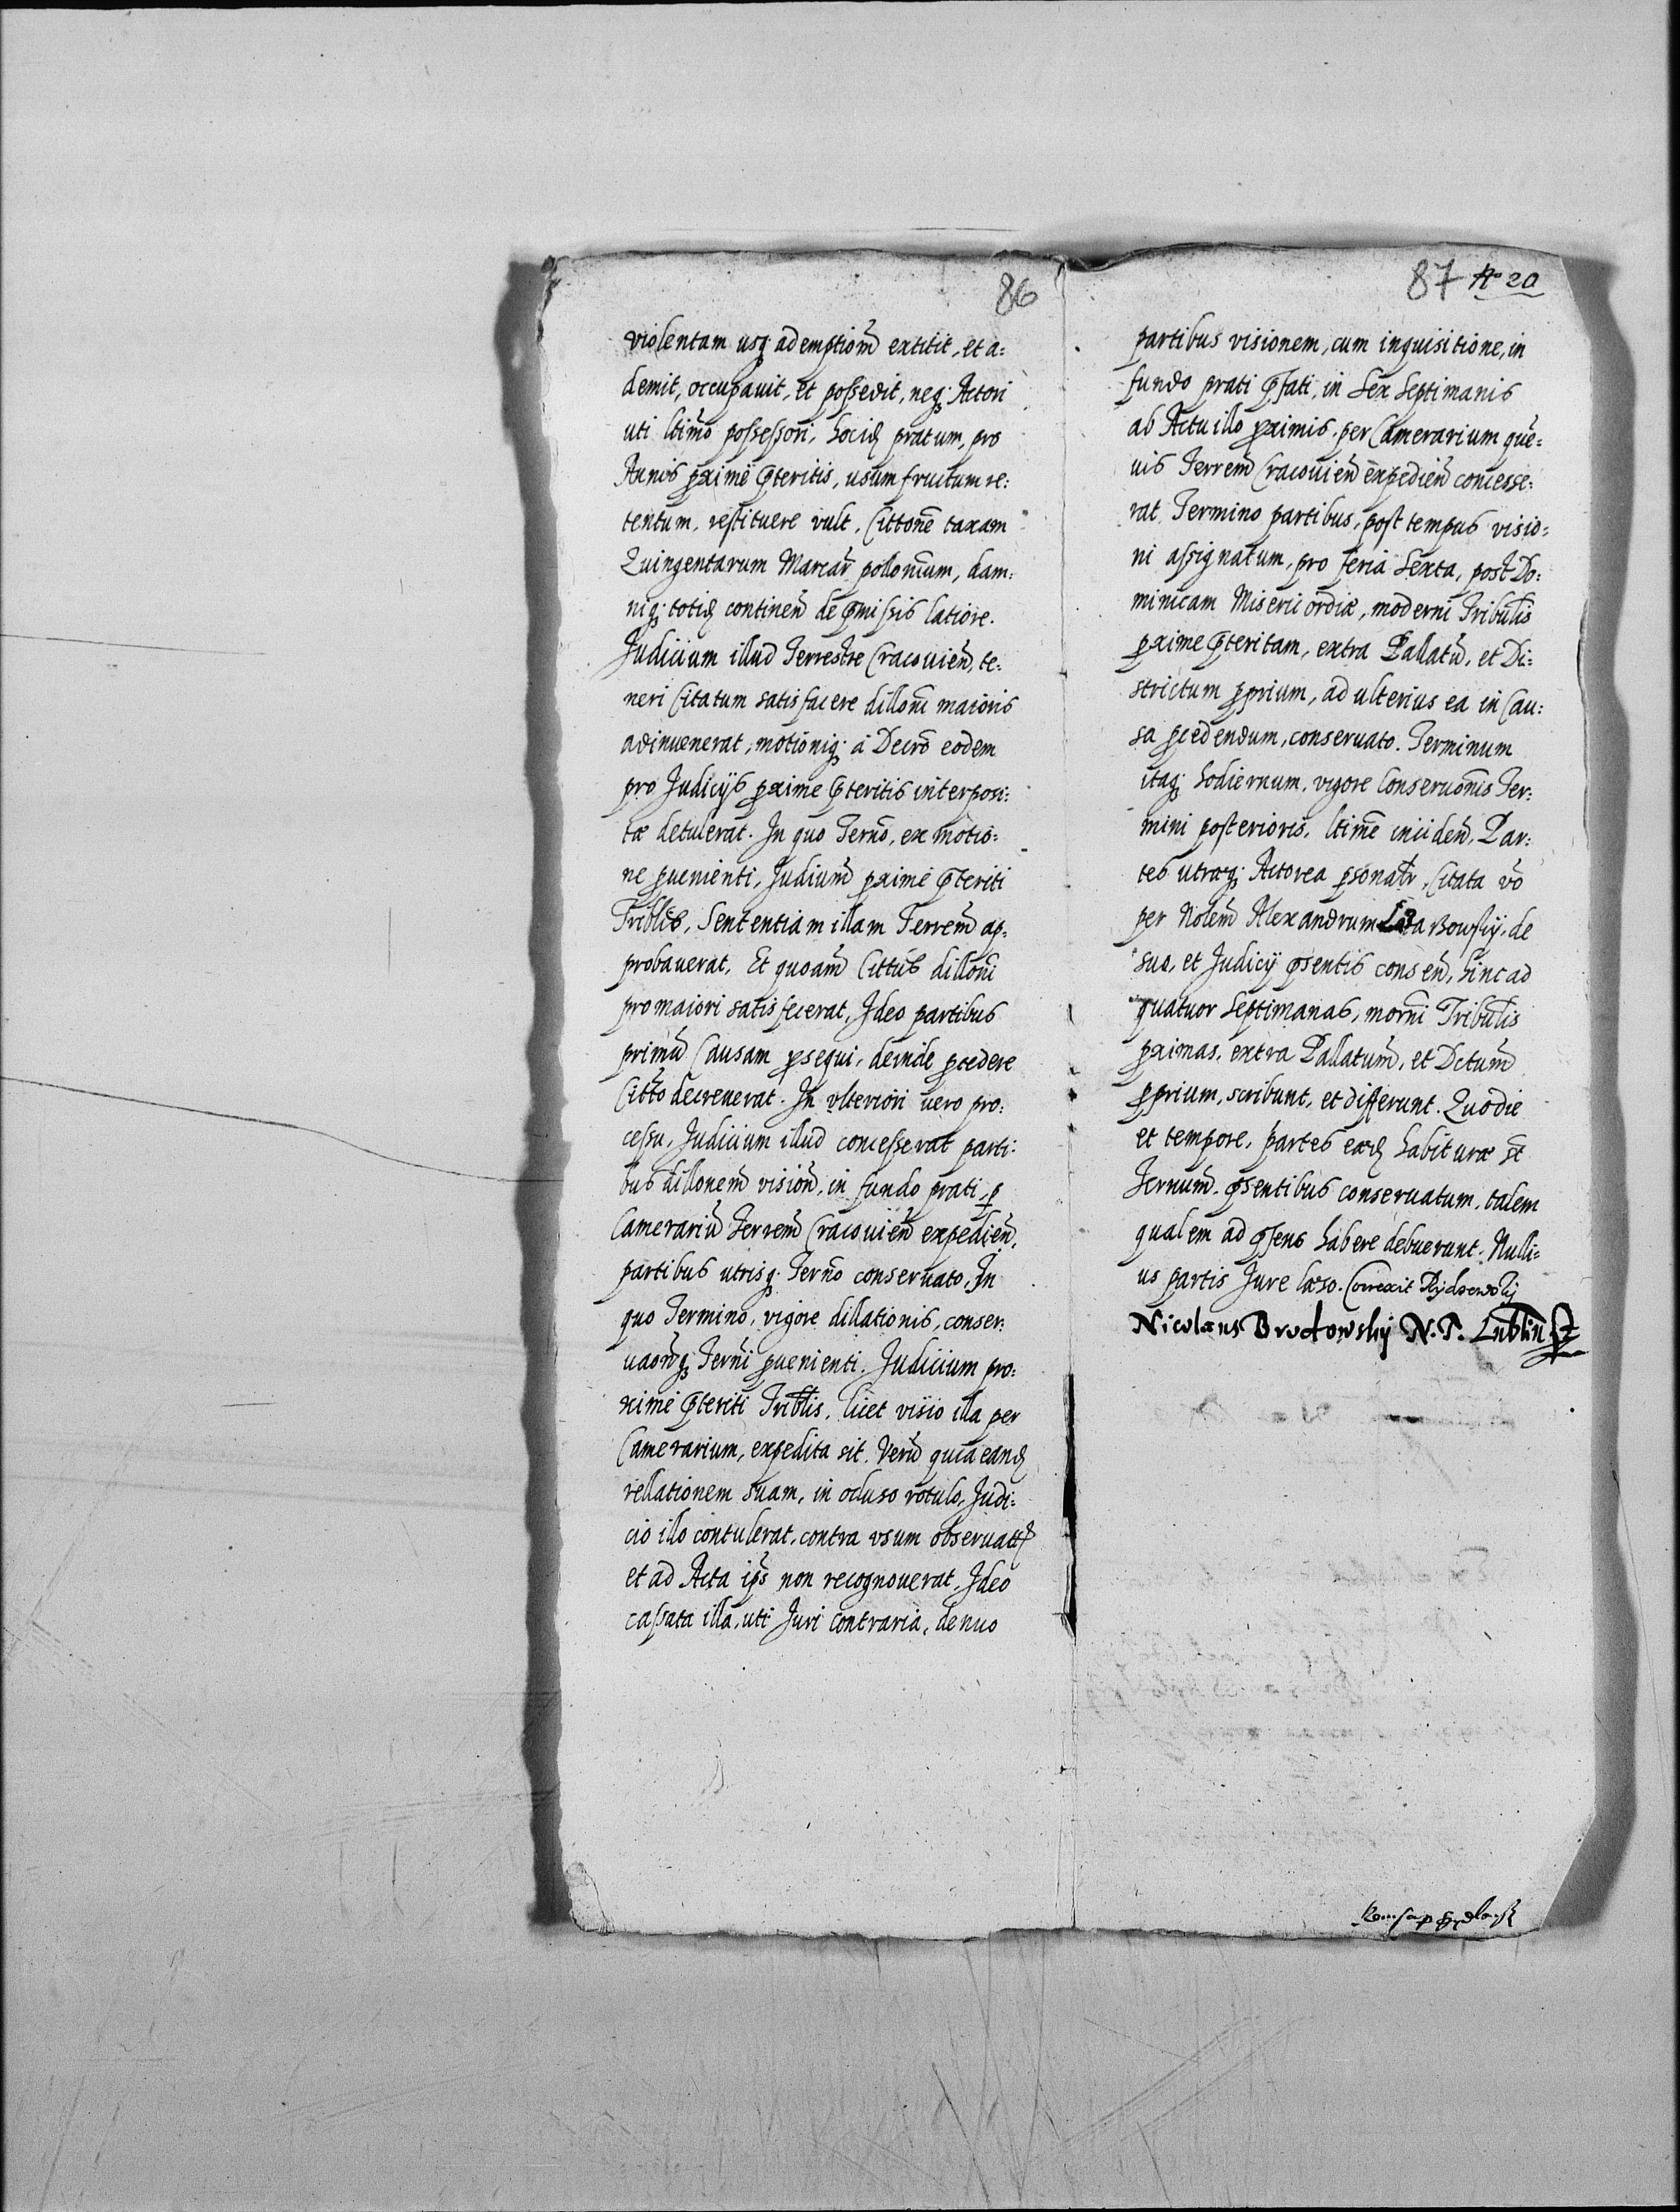 86
violentam usq; ademptioñ extitit, et a=
demit, occupauit, et possedit, neq; Actori
uti ltimo possessori, hocidꝫ pratum, pro
Annis ꝓxime p̃teritis, usumfructum re:
tentum, restituere vult, Cittone taxam
Quingentarum Marcar̃ polonicum, dam:
niq; totidꝫ continen̄ de p̃missis latiore.
Judicium illud Terrestre Cracouien̄, te:
neri Citatum satisfacere dilloni maioris
adinuenerat, motioniq; á Decro eodem
pro Judicijs ꝓxime p̃teritis interposi:
tæ detulerat. In quo Terno, ex motio:
ne ꝓuenienti, Judicium̄ ꝓxime p̃teriti
Triblis, Sententiam illam Terren̄ ap:
probauerat, Et quoam̄ Cittus dilloni
pro maiori satisfecerat, Ideo partibus
primu Causam ꝓsequi, deinde ꝓcedere
Citto decreuerat. In vlteriori uero pro:
cessu, Judicium illud concesserat parti:
bus dillonem̄ vision̄, in fundo prati, ꝑ
Camerariu Terren̄ Cracouien̄ expedien̄,
partibus utrisq; Terno conseruato, In
quo Termino, vigore dillationis, conser:
uaonisq; Terni ꝓuenienti. Judicium pro:
xime p̃teriti Triblis, licet visio illa per
Camerarium, expedita sit. Veru quia eandꝫ
rellationem suam, in ocluso rotulo, Judi:
cio illo contulerat, contra vsum obseruatꝫ
et ad Acta ips̄ non recognouerat, Ideo
cassata illa, uti Juri contraria, denuo
87 No 20
partibus visionem, cum inquisitione, in
fundo prati p̃fati, in Sex Septimanis
ab Actu illo ꝓximis, per Camerarium que=
uis Terren̄ Cracouien̄ expedien̄ concesse:
rat, Termino partibus, post tempus visio:
ni assignatum, pro feria Sexta, post Do:
minicam Misericordiæ, moderni Tribulis
ꝓxime p̃teritam, extra Pallatu, et Di:
strictum ꝓprium, ad ulterius ea in Cau:
sa ꝓcedendum, conseruato. Terminum
itaq; hodiernum, vigore Conseruonis Ter:
mini posterioris, ltime inciden̄, Par:
tes utraq; Actorea ꝑsonatr, Citata vo
per Nolem̄ Alexandrum Bowskij, de
suo, et Judicij p̃sentis consen̄, hinc ad
quatuor Septimanas, morni Tribulis
ꝓximas, extra Pallatum̄, et Dctum̄
ꝓprium, scribunt, et differunt. Quo die
et tempore, partes eædꝫ habituræ st̄
Ternum̄, p̃sentibus conseruatum, talem
qualem ad p̃sens habere debuerunt. Nulli=
us partis Jure læso. Correxit
Nicolaus Brodowskij N. T. Lublin